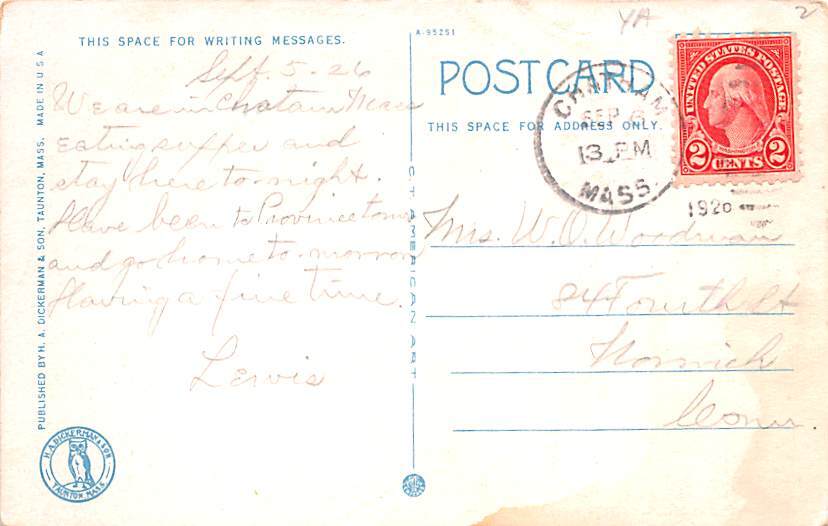 THIS SPACE FOR WRITING MESSAGES.
Sept. 5-26
We are in Chatam Mass
Eating supper and
stay here to-night.
Have been to Provincetown
and go home to-morrow
Having a fine time.
Lewis
PUBLISHED BY H. A. DICKERMAN & SON, TAUNTON, MASS. MADE IN U S A
H.A. DICKERMAN & SON
TAUNTON MASS.
A-95251
POST CARD
THIS SPACE FOR ADDRESS ONLY.
AMERICAN ART
YA
2
CHATHAM
SEP 6
3 PM
MASS.
1926
UNITED STATES POSTAGE
WASHINGTON
2 CENTS 2
Mrs. W. O. Woodman
84 Fourth St
Norwich
Conn.